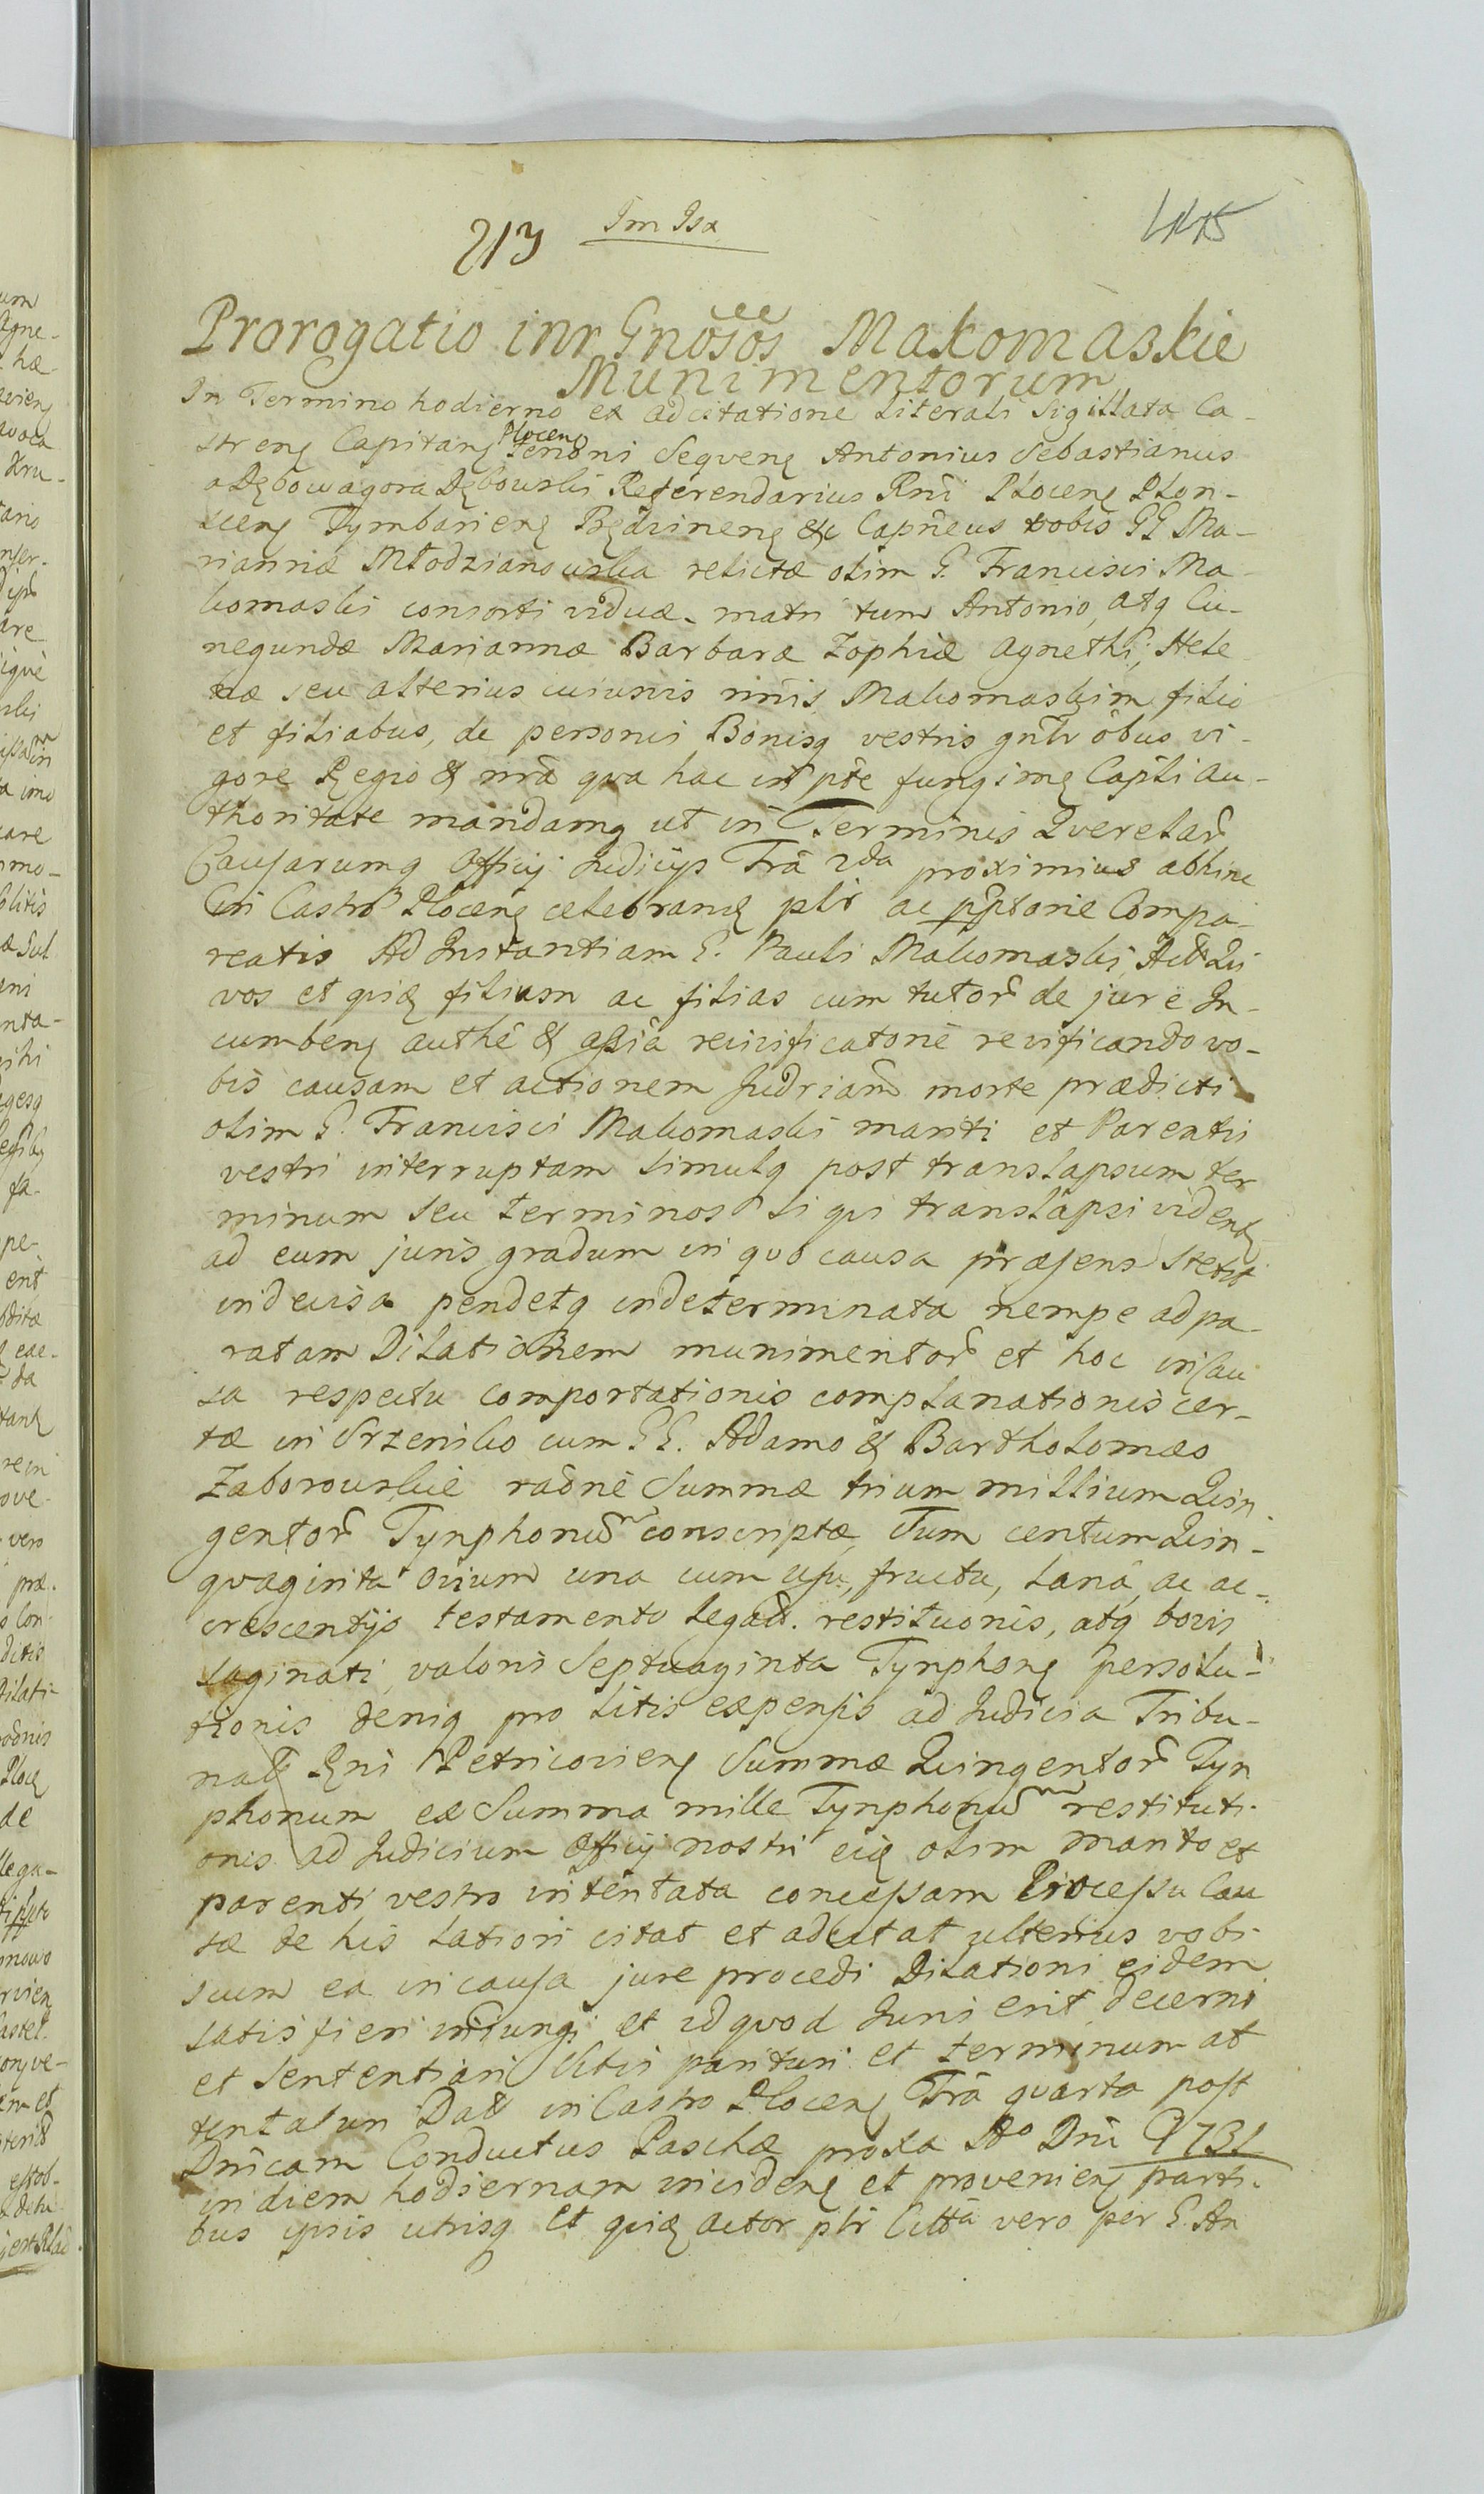 213 Im Isa 445
Prorogatio intr Gnōsōs ee Makomaskie
Munimentorum
In Termino hodierno ex adcitatione Literali Sigillata Ca-
streng Capitang Ploceng Tenōni Seqveng Antonius Sebastianus
a Dębowagora Dębowski Referendarius Rnī Ploceng Plon-
sceng Tymbarieng Będzineng &c Capñeus vobis GG Ma-
riannæ Młodzianowska relictæ olim G. Francisci Ma-
komaski consorti viduæ matri tum Antonio, atq Cu-
negundæ Mariannæ Barbaræ Zophiæ Agnethi, Hele
næ seu alterius cuiusvis nīnis Makomaskim filio
et filiabus, de personis Bonisq vestris gnlr ōbus vi-
gore Regio & nrā qva hac in pte fungimę Capīli au-
thoritate mandamq ut in Terminis Qverelar
Causarumq Officij Judicijs Frā 2da proximius abhinc
in Castro Ploceng celebrandę plr ac pptorie Compa-
reatis Ad Instantiam G. Pauli Makomaski, Act Qui
vos et qvię filium ac filias cum tutor de jure In-
cumbeng authē & assia reivificatorie revificando vo-
bis causam et actionem Judriam morte prædicti
olim G. Francisci Makomaski mariti et Parentis
vestri interruptam simulq post translapsum ter
minum seu terminos si qvi translapsi vident
ad eum juris gradum in qvo causa præsens stetit
indecisa pendetq indeterminata nempe ad pa-
ratam Dilationem munimentor et hoc in cau
sa respectu comportationis complanationis cer-
tæ in Srzensko cum GG. Adamo & Bartholomæo
Zaborowskie raōne Summæ trium millium Quin
gentor Tynphonum conscriptæ, Tum centum Quin-
qvaginta ovium una cum usu, fructu, lana, ac ac-
crescentijs testamento legat. restituōnis, atq bovis
saginati, valoris Septuaginta Tynphong persolu-
tionis deniq pro litis expensis ad Judicia Tribu-
nalī Rni Petricovieng Summæ Quingentor Tyn
phonum ex Summa mille Tynphonum restituti-
onis ad Judicium Officij nostri eię olim marito et
parenti vestro intentata concessam Processu Cau
sæ de his latiori citat et adcitat ulterius vobi
scum ea in causa jure procedi Dilationi eidem
satisfieri iniungi et id qvod Juri erit decerni
et sententiari Sitis parituri et terminum at
tentaturi Dat in Castro Ploceng Frā qvarta post
Dnicam Conductus Paschæ proxa Ao Dni 1731
in diem hodiernam incideng et provenieng parti-
bus ipsis utrisq Et qvię actor plr Cittā vero per G. An